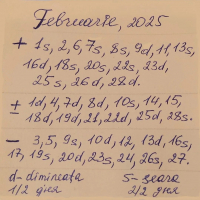 Februarie, 2025
+ 1s, 2, 6, 7s, 8s, 9d, 11, 13s,
16d, 18s, 20s, 22s, 23d,
25s, 26d, 28d.
± 1d, 4, 7d, 8d, 10s, 14, 15,
18d, 19d, 21, 22d, 25d, 28s.
− 3, 5, 9s, 10d, 12, 13d, 16s,
17, 19s, 20d, 23s, 24, 26s, 27.
d - dimineata s - seara
1/2 дня 2/2 дня